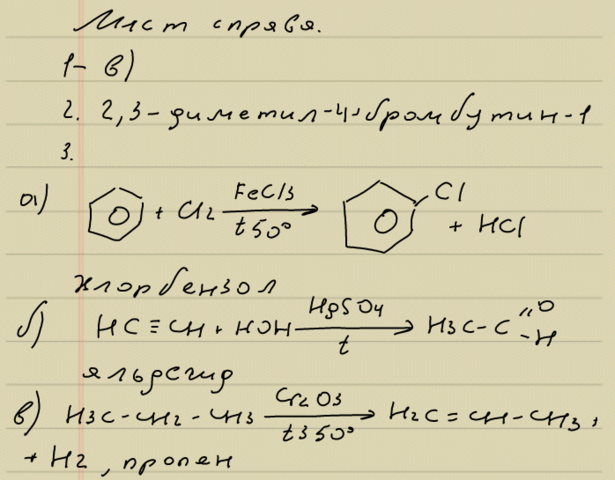 Лист справа.
1- в)
2. 2,3-диметил-4-бромбутин-1
3.
а) + Cl2 FeCl3 t 50° Cl + HCl
хлорбензол
б) HC≡CH + HOH HgSO4 t H3C-C =O -H
альдегид
в) H3C-CH2-CH3 Cr2O3 t350° H2C=CH-CH3,
+ H2, пропен